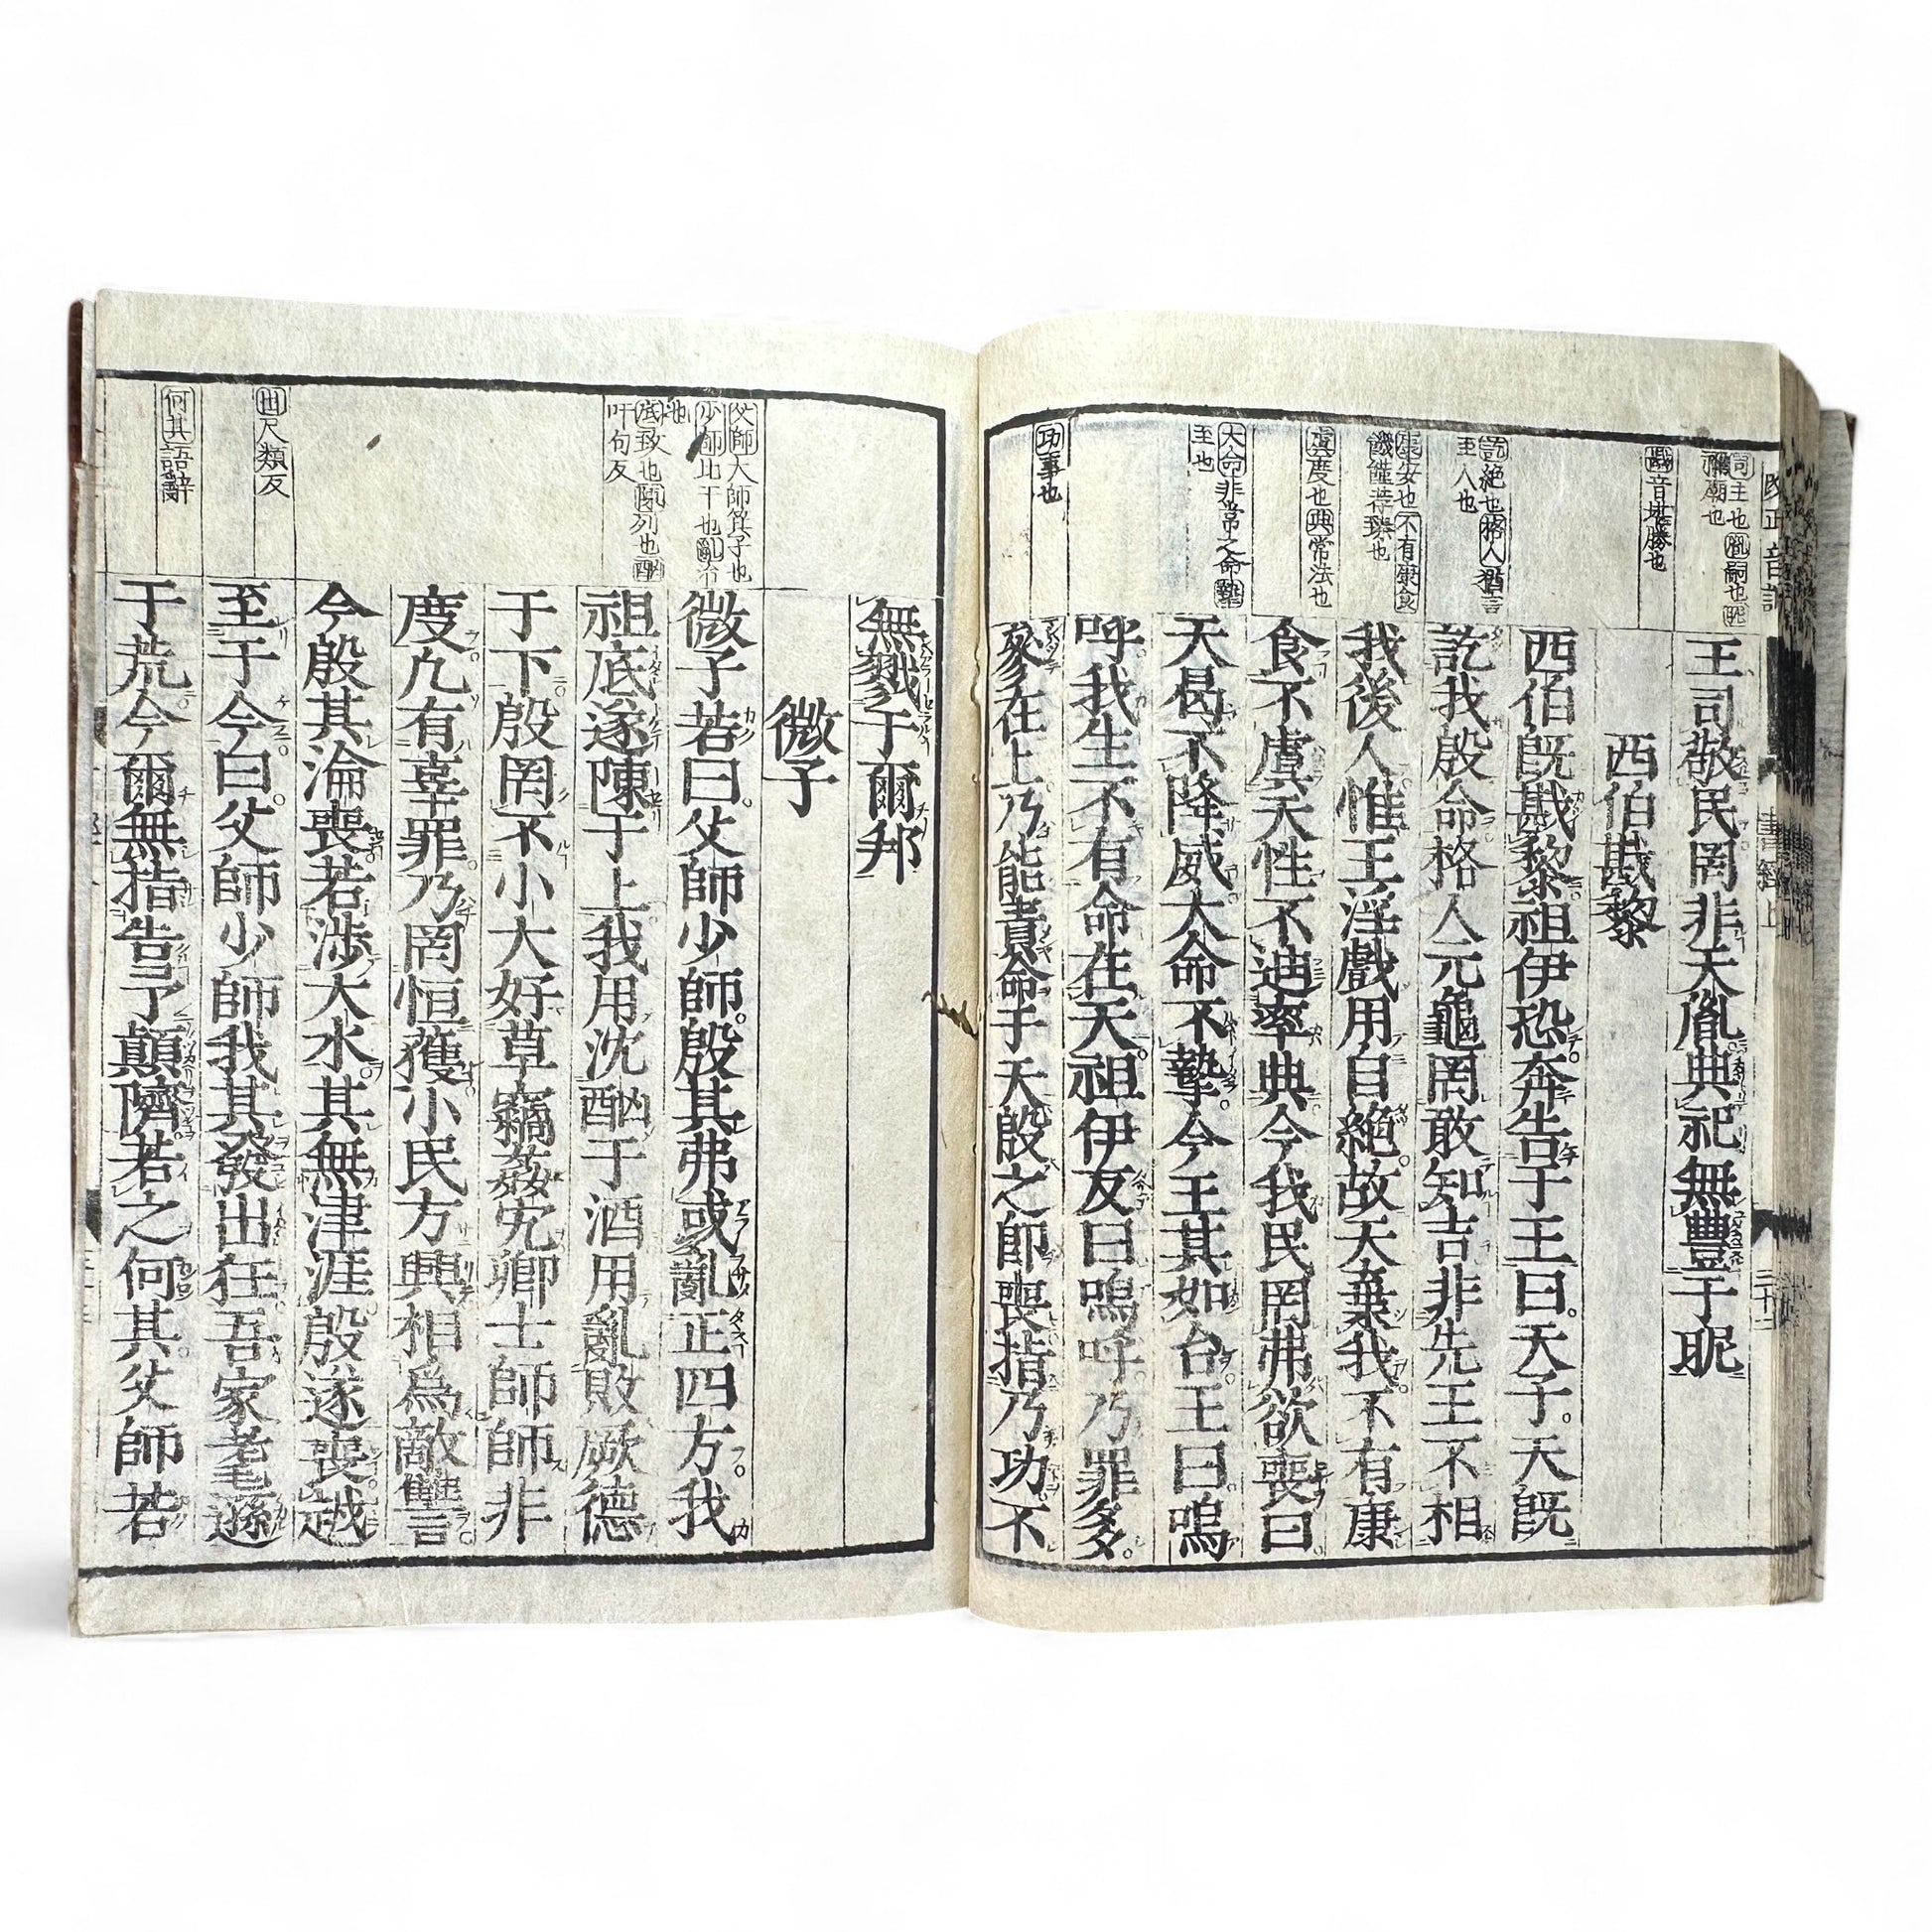 司主也胤嗣也昵
禰廟也
戡音堪勝也
訖絶也格人猶言
至人也
康安也不有康食
饑饉荐臻也
虞度也典常法也
大命非常之命摯
至也
功事也
王司敬民罔非天胤典祀無豐于昵
西伯戡黎
西伯既戡黎祖伊恐奔告于王曰。天子。天既
訖我殷命格人元龜罔敢知吉非先王不相
我後人惟王淫戲用自絶。故天棄我不有康
食不虞天性不迪率典今我民罔弗欲喪曰。
天曷不降威大命不摯今王其如台王曰嗚
呼我生不有命在天。祖伊反曰嗚呼乃罪多。
參在上乃能責命于天殷之即喪指乃功不
書經上
父師太師箕子也
少師比干也亂治
也
底致也陳列也酗
吁句反
出尺類反
何其語辭
無戮于爾邦
微子
微子若曰。父師少師。殷其弗或亂正四方我
祖底遂陳于上我用沈酗于酒用亂敗厥德
于下殷罔不小大好草竊姦宄卿士師師非
度凢有辜罪乃罔恒獲小民方興相爲敵讐
今殷其淪喪若涉大水其無津涯。殷遂喪越
至于今曰父師少師我其發出狂吾家耄遜
于荒今爾無指告予顛隮若之何其。父師若